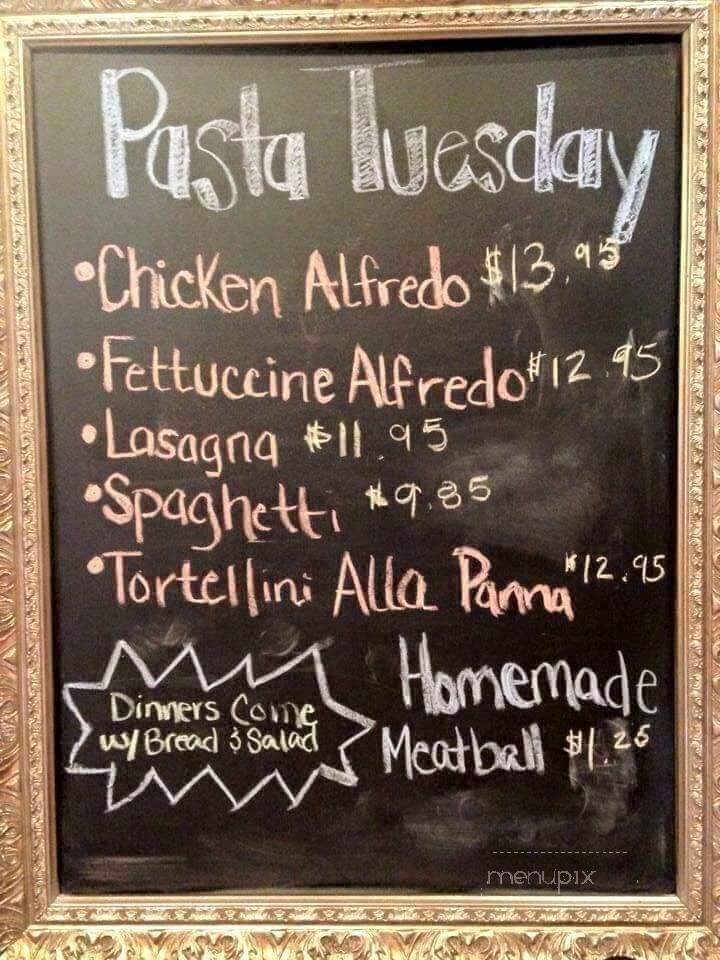 Pasta Tuesday
• Chicken Alfredo $13.95
• Fettuccine Alfredo $12.95
• Lasagna $11.95
• Spaghetti $9.85
• Tortellini Alla Panna $12.95
Dinners Come
w/ Bread & Salad
Homemade
Meatball $1.25
menupix